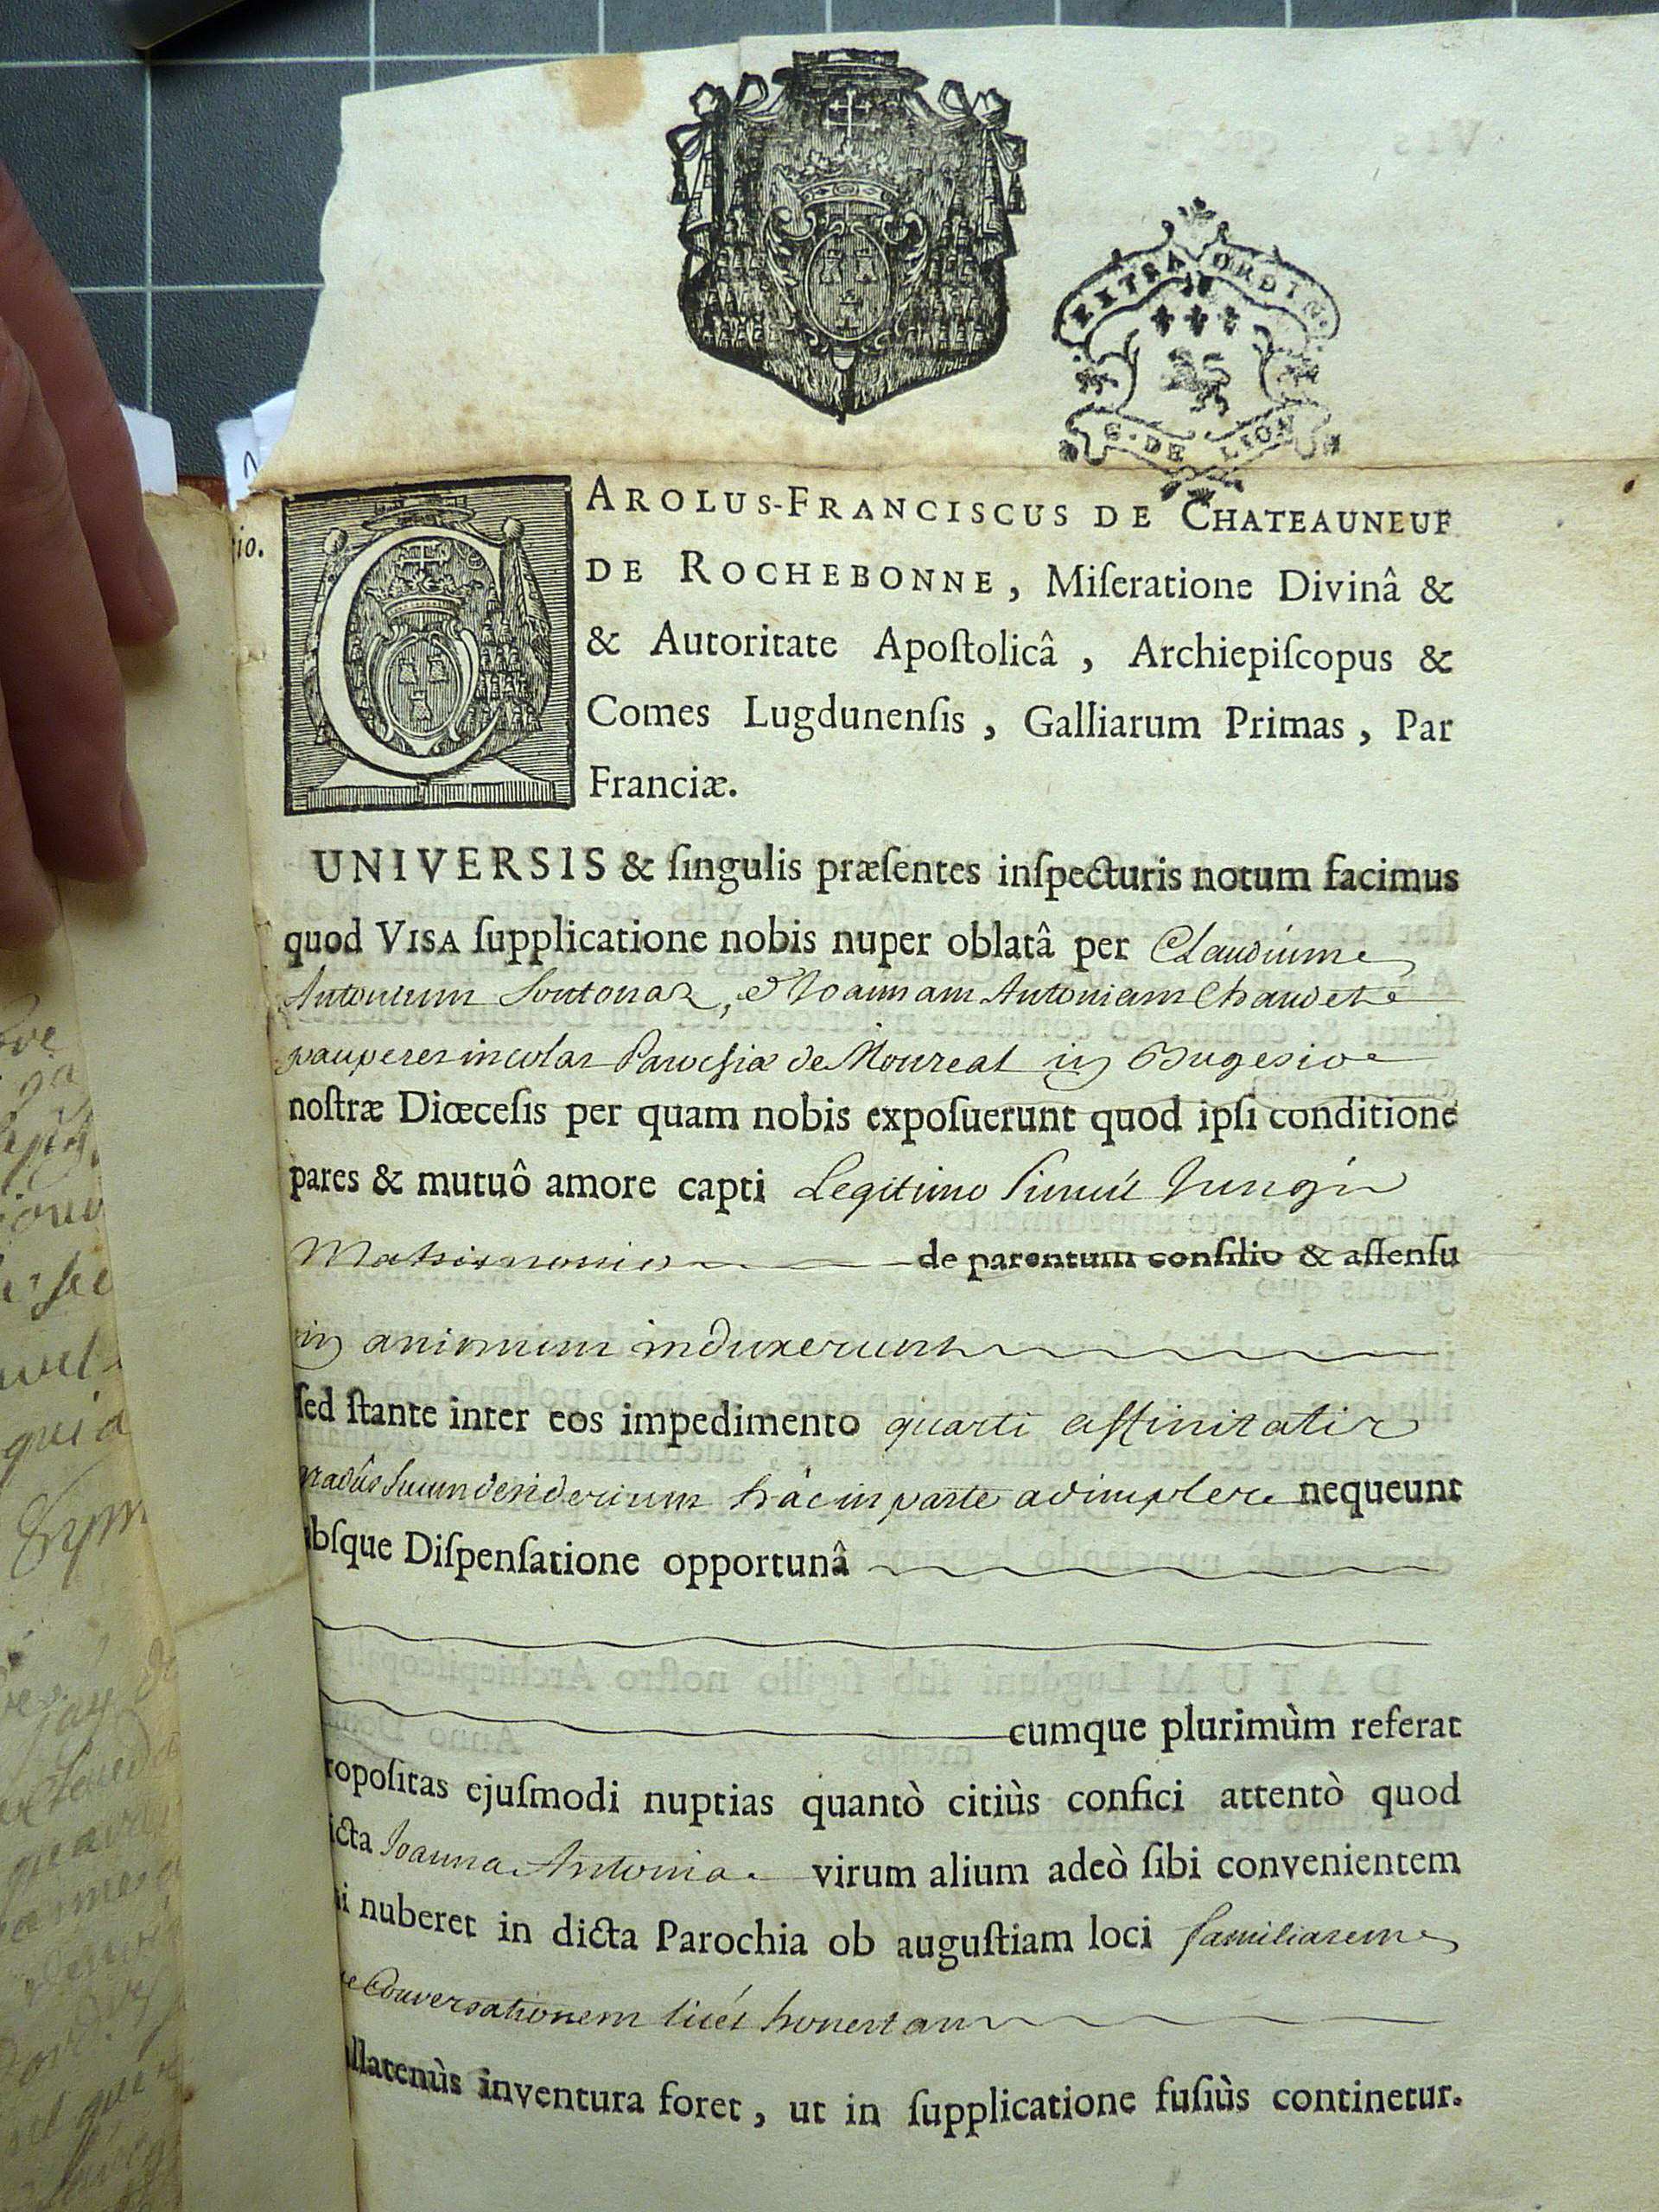 EXTRA ORDIN.
G. DE LION
CAROLUS-FRANCISCUS DE CHATEAUNEUF
DE ROCHEBONNE, Miſeratione Divinâ &
& Autoritate Apoſtolicâ, Archiepiſcopus &
Comes Lugdunenſis, Galliarum Primas, Par
Franciæ.
UNIVERSIS & ſingulis præſentes inſpecturis notum facimus
quod VISA ſupplicatione nobis nuper oblatâ per Claudium
Antonium Soutonax, & Joannam Antoniam Chaudet
pauperes incolas Parochiæ de Montreal in Bugesio
noſtræ Diœceſis per quam nobis expoſuerunt quod ipſi conditione
pares & mutuô amore capti Legitimo simul Jungi
Matrimonio de parentum conſilio & aſſenſu
in animum induxerunt
ſed ſtante inter eos impedimento quarti affinitatis
gradûs suum desiderium hâc in parte adimplere nequeunt
abſque Diſpenſatione opportunâ
cumque plurimùm referat
ropoſitas ejuſmodi nuptias quantò citiùs confici attentò quod
icta Joanna Antonia virum alium adeò ſibi convenientem
i nuberet in dicta Parochia ob auguſtiam loci familiarem
Conversationem licét honestam
llatenùs inventura foret, ut in ſupplicatione fuſiùs continetur.